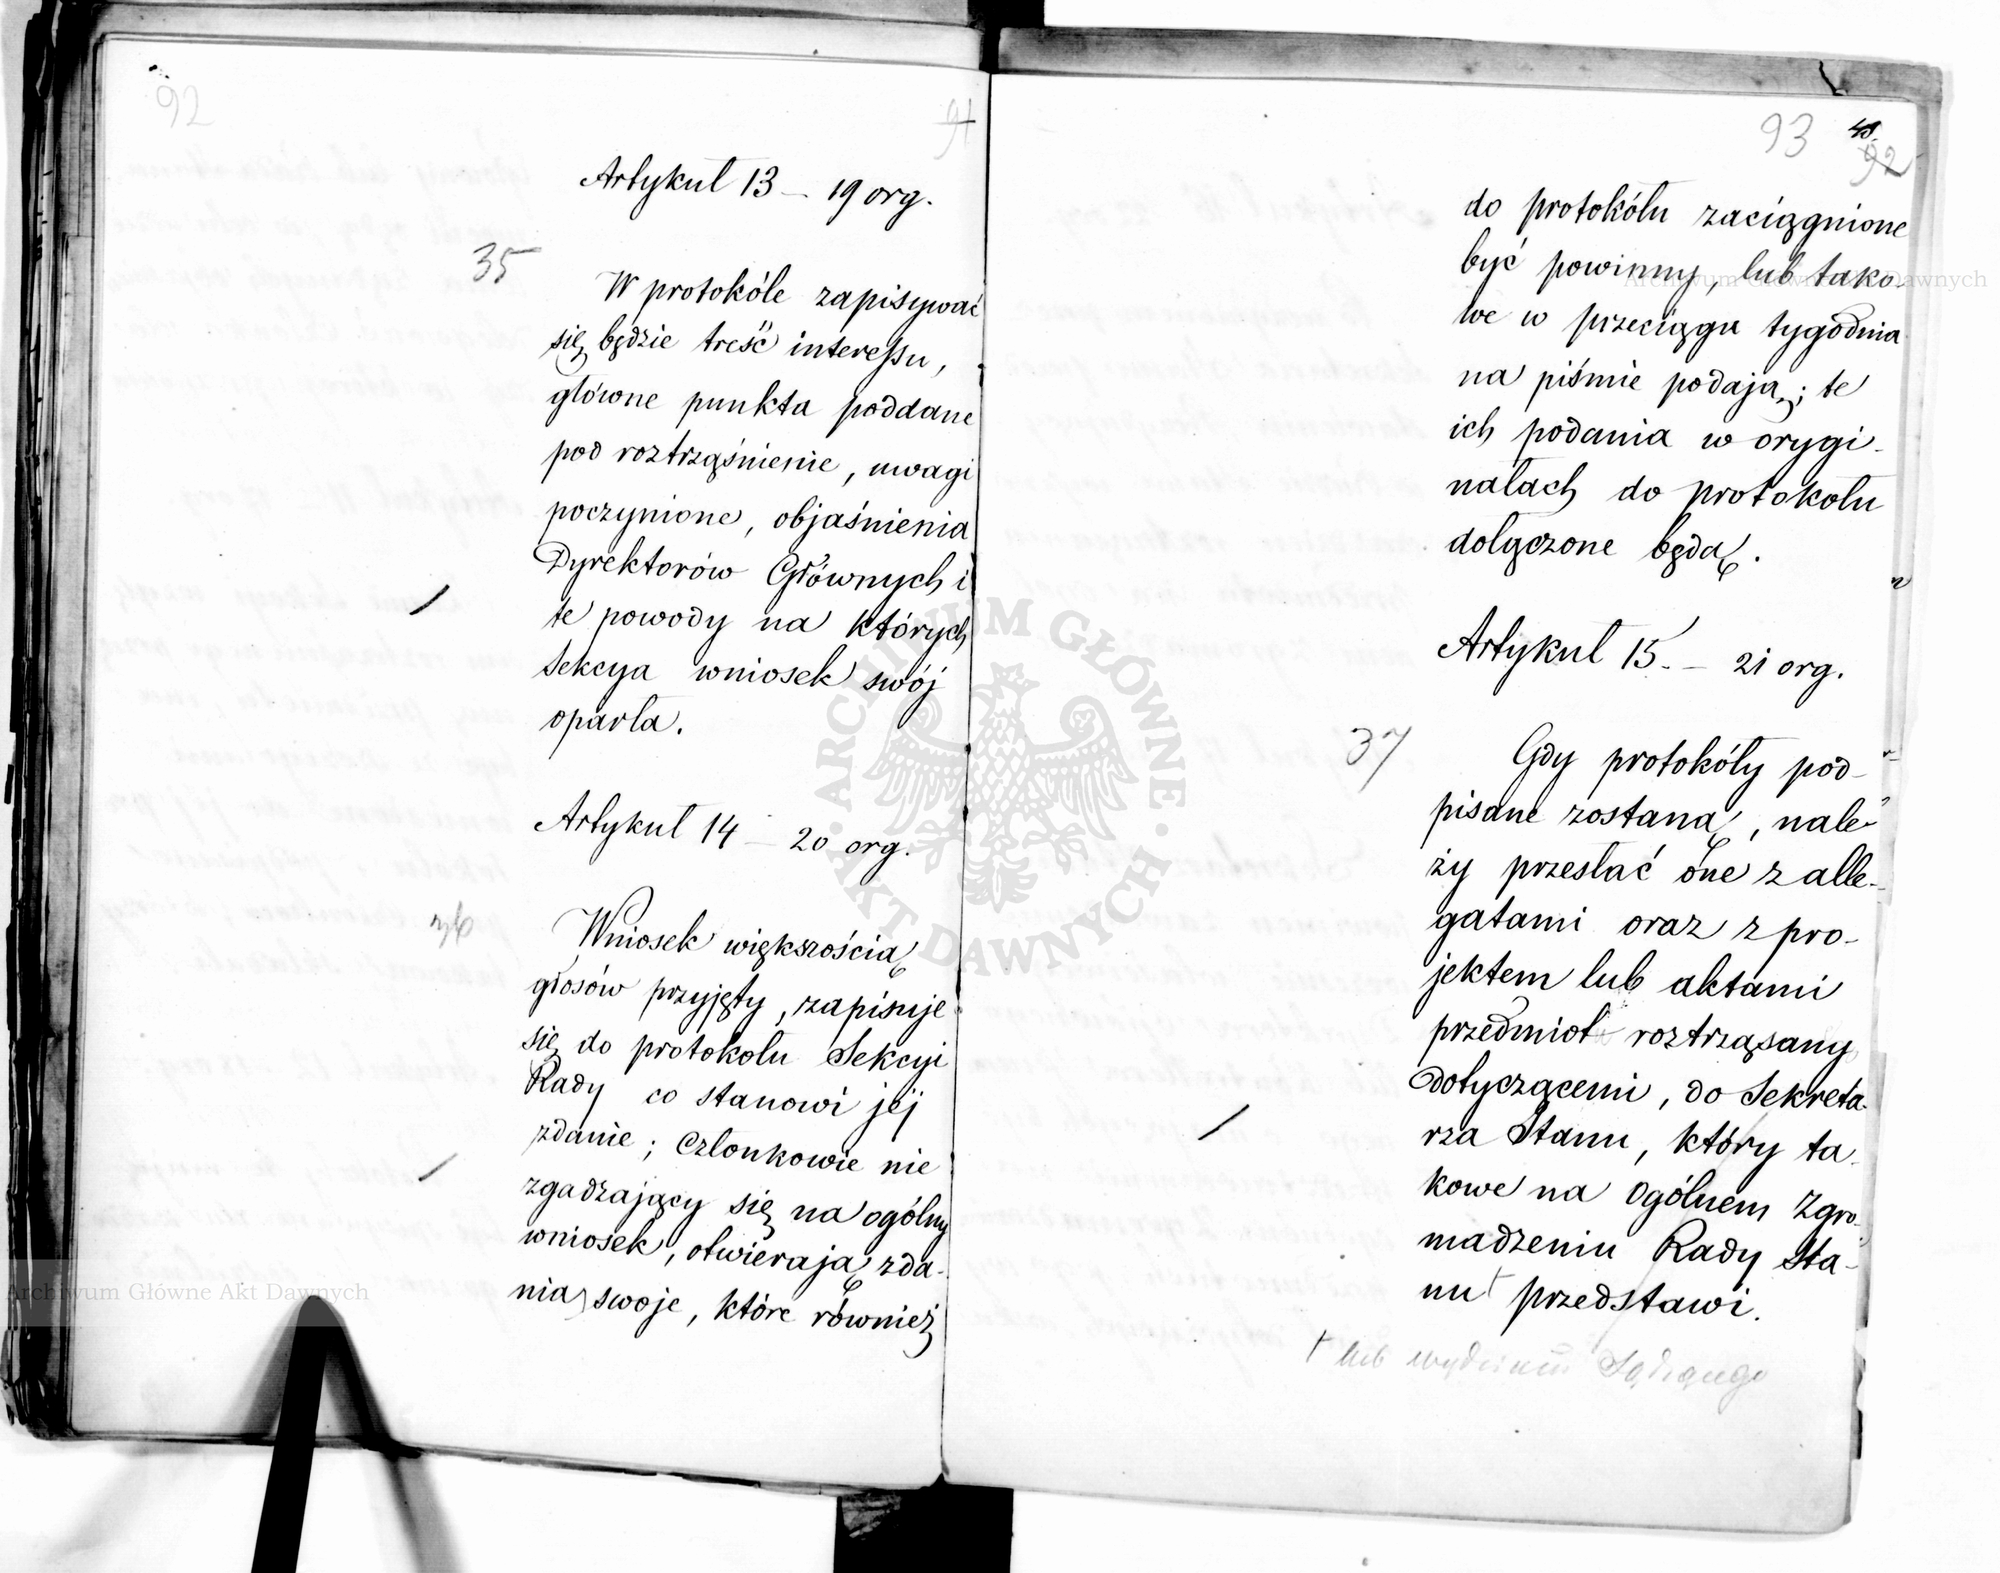 92
91
Artykuł 13 – 19 org.
35
W protokóle zapisywać
się będzie treść interessu,
główne punkta poddane
pod roztrząśnienie, uwagi
poczynione, objaśnienia
Dyrektorów Głównych i
te powody na których
Sekcya wniosek swój
oparła.
Artykuł 14 – 20 org.
36
Wniosek większością
głosów przyjęty, zapisuje
się do protokołu Sekcyi
Rady co stanowi jej
zdanie; Członkowie nie
zgadzający się na ogólny
wniosek, otwierają zda-
nia swoje, które również
93
48.
92
do protokółu zaciągnione
być powinny, lub tako-
we w przeciągu tygodnia
na piśmie podają; te
ich podania w orygi-
nałach do protokołu
dołączone będą.
Artykuł 15. – 21 org.
37
Gdy protokóły pod-
pisane zostaną, nale-
ży przesłać one z alle-
gatami oraz z pro-
jektem lub aktami
przedmiot roztrząsany
dotyczącemi, do Sekreta-
rza Stanu, który ta-
kowe na Ogólnem Zgro-
madzeniu Rady Sta-
nu + przedstawi.
+ lub wydziału Sądzącego
ARCHIWUM GŁÓWNE AKT DAWNYCH
Archiwum Główne Akt Dawnych
Archiwum Główne Akt Dawnych